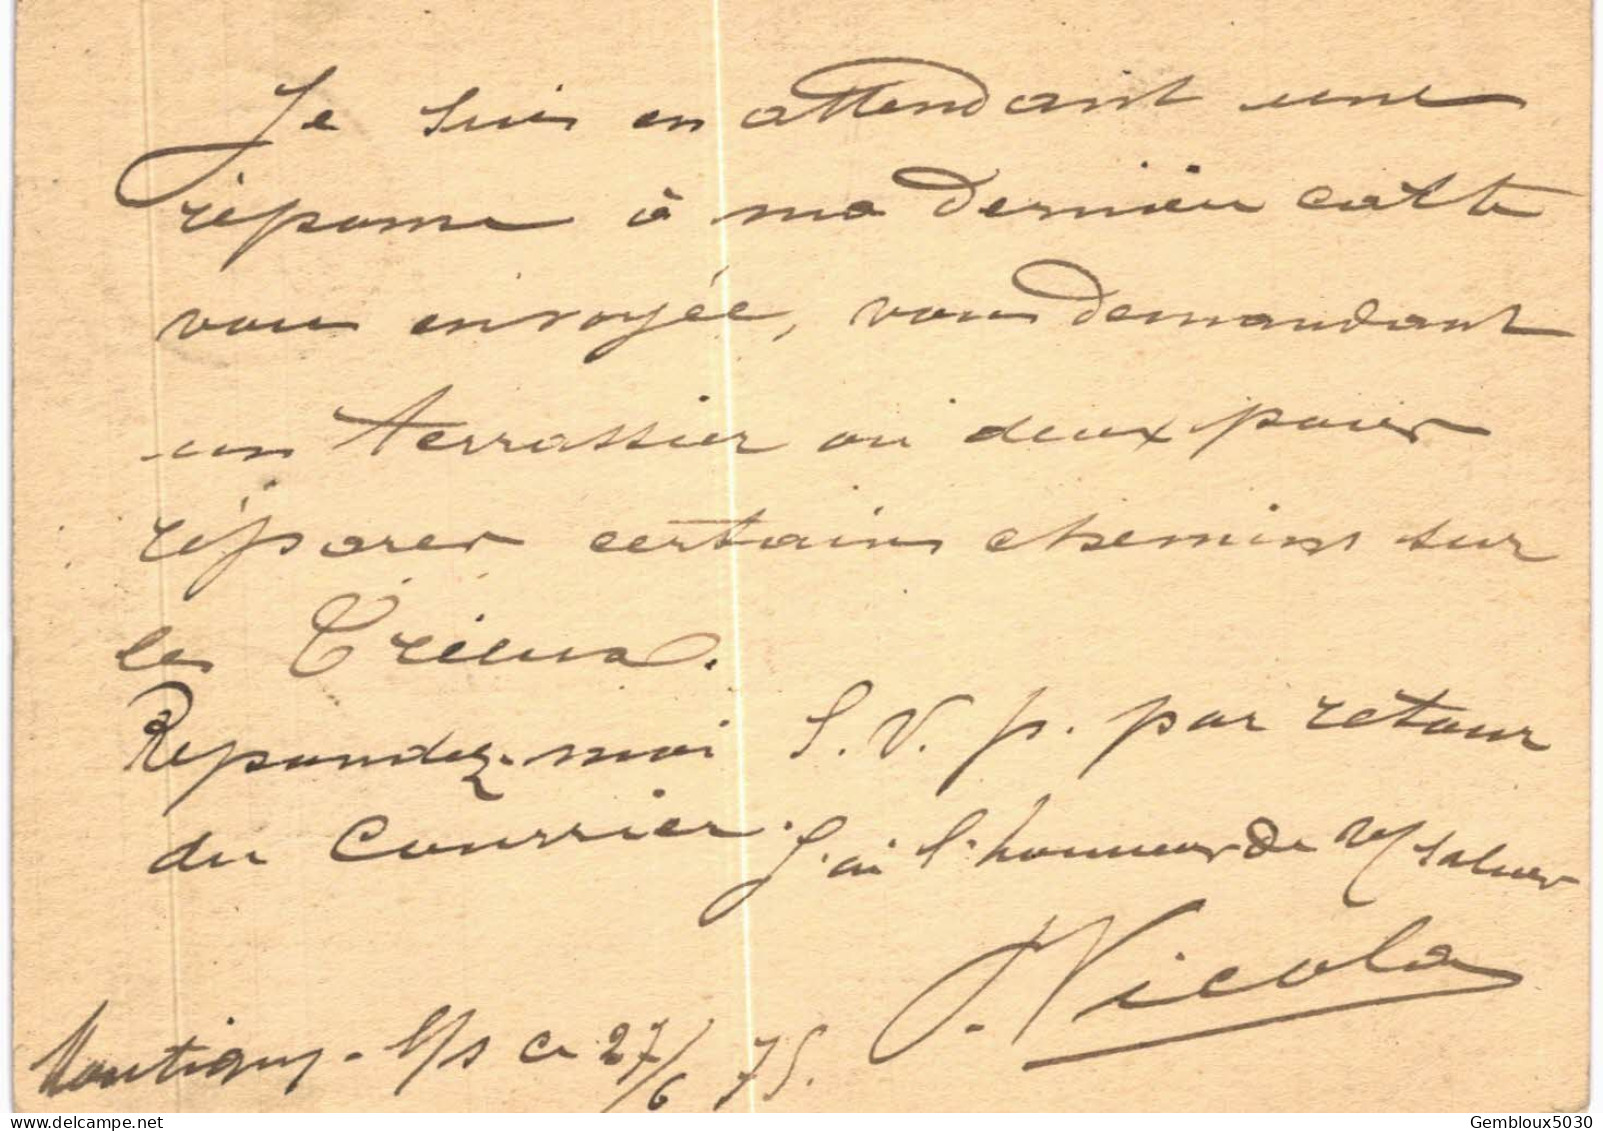 Je suis en attendant une
réponse à ma dernière carte
vous envoyée, vous demandant
un terrassier ou deux pour
réparer certains chemins sur
les Trieux.
Repondez-moi S.V.p. par retour
du Courrier. J'ai l'honneur de V/ saluer
J. Nicolas
Montigny-s/s ce 27/6 75.
Gembloux5030